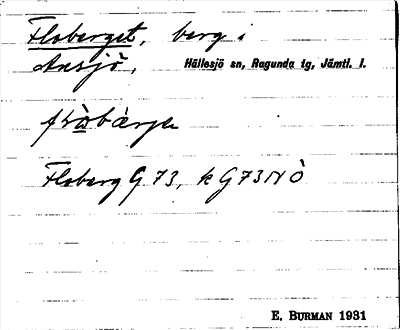 Floberget, berg i
Ansjö, Hällesjö sn, Ragunda tg, Jämtl. l.
Floberg G 73, k G73NÖ
E. BURMAN 1931